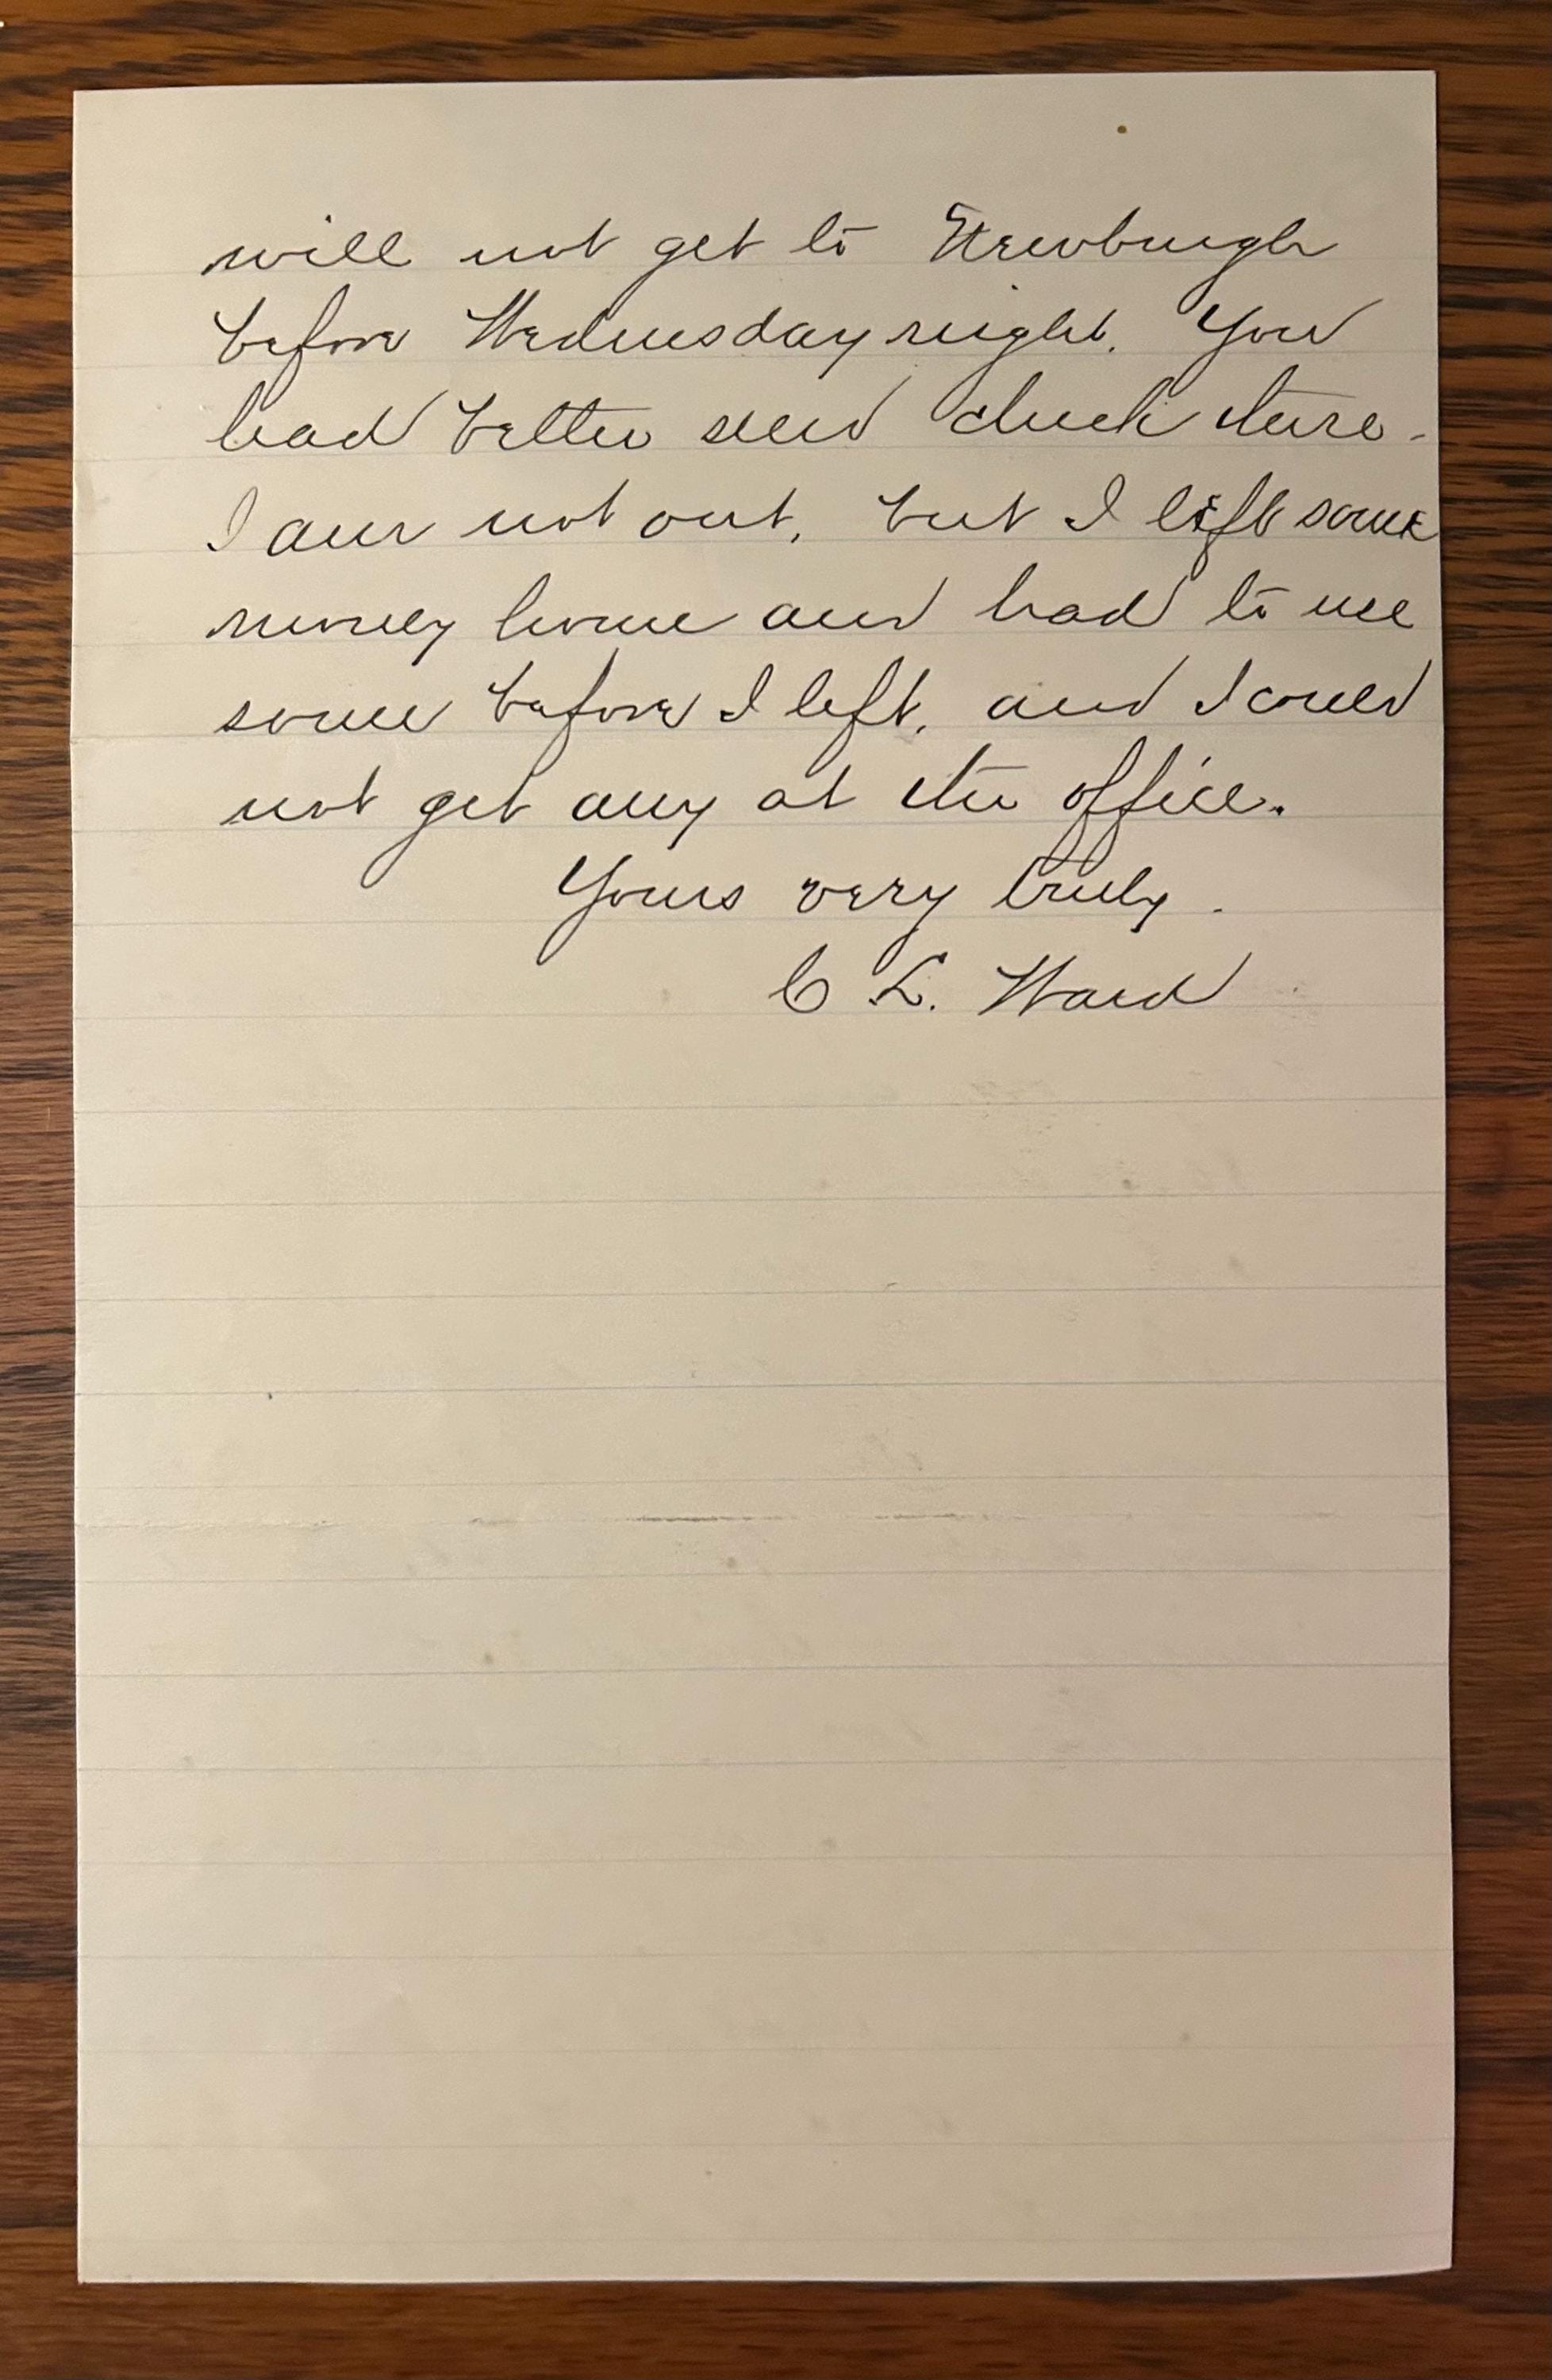 will not get to Newburgh
before Wednesday night. You
had better send check there.
I am not out, but I left some
money home and had to use
some before I left, and I could
not get any at the office.
Yours very truly.
C L. Ward